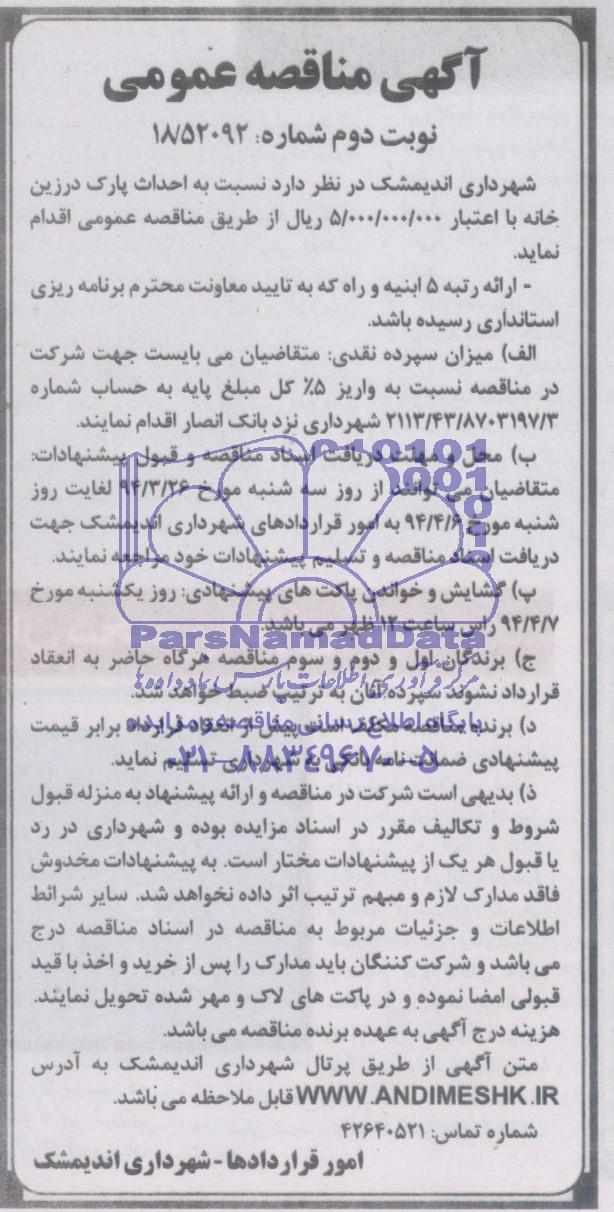 آگهی مناقصه عمومی
نوبت دوم شماره: ۱۸/۵۲۰۹۲
شهرداری اندیمشک در نظر دارد نسبت به احداث پارک درزین
خانه با اعتبار ۵/۰۰۰/۰۰۰/۰۰۰ ریال از طریق مناقصه عمومی اقدام
نماید.
- ارائه رتبه ۵ ابنیه و راه که به تایید معاونت محترم برنامه ریزی
استانداری رسیده باشد.
الف) میزان سپرده نقدی: متقاضیان می بایست جهت شرکت
در مناقصه نسبت به واریز ۵٪ کل مبلغ پایه به حساب شماره
۲۱۱۳/۴۳/۸۷۰۳۱۹۷/۳ شهرداری نزد بانک انصار اقدام نمایند.
ب) محل و مهلت دریافت اسناد مناقصه و قبول پیشنهادات:
متقاضیان می توانند از روز سه شنبه مورخ ۹۴/۳/۲۶ لغایت روز
شنبه مورخ ۹۴/۴/۶ به امور قراردادهای شهرداری اندیمشک جهت
دریافت اسناد مناقصه و تسلیم پیشنهادات خود مراجعه نمایند.
پ) گشایش و خواندن پاکت های پیشنهادی: روز یکشنبه مورخ
۹۴/۴/۷ راس ساعت ۱۲ ظهر می باشد.
ParsNamadData
ج) برندگان اول و دوم و سوم مناقصه هرگاه حاضر به انعقاد
مرکز فرآوری اطلاعات پارس نماد داده ها
قرارداد نشوند سپرده آنان به ترتیب ضبط خواهد شد.
پایگاه اطلاع رسانی مناقصه و مزایده
د) برنده مناقصه مکلف است پیش از انعقاد قرارداد برابر قیمت
۰۲۱-۸۸۳۴۹۶۷۰-۵
پیشنهادی ضمانت نامه بانکی به شهرداری تسلیم نماید.
ذ) بدیهی است شرکت در مناقصه و ارائه پیشنهاد به منزله قبول
شروط و تکالیف مقرر در اسناد مزایده بوده و شهرداری در رد
یا قبول هر یک از پیشنهادات مختار است. به پیشنهادات مخدوش
فاقد مدارک لازم و مبهم ترتیب اثر داده نخواهد شد. سایر شرائط
اطلاعات و جزئیات مربوط به مناقصه در اسناد مناقصه درج
می باشد و شرکت کننگان باید مدارک را پس از خرید و اخذ با قید
قبولی امضا نموده و در پاکت های لاک و مهر شده تحویل نمایند.
هزینه درج آگهی به عهده برنده مناقصه می باشد.
متن آگهی از طریق پرتال شهرداری اندیمشک به آدرس
WWW.ANDIMESHK.IR قابل ملاحظه می باشد.
شماره تماس: ۴۲۶۴۰۵۲۱
امور قراردادها - شهرداری اندیمشک